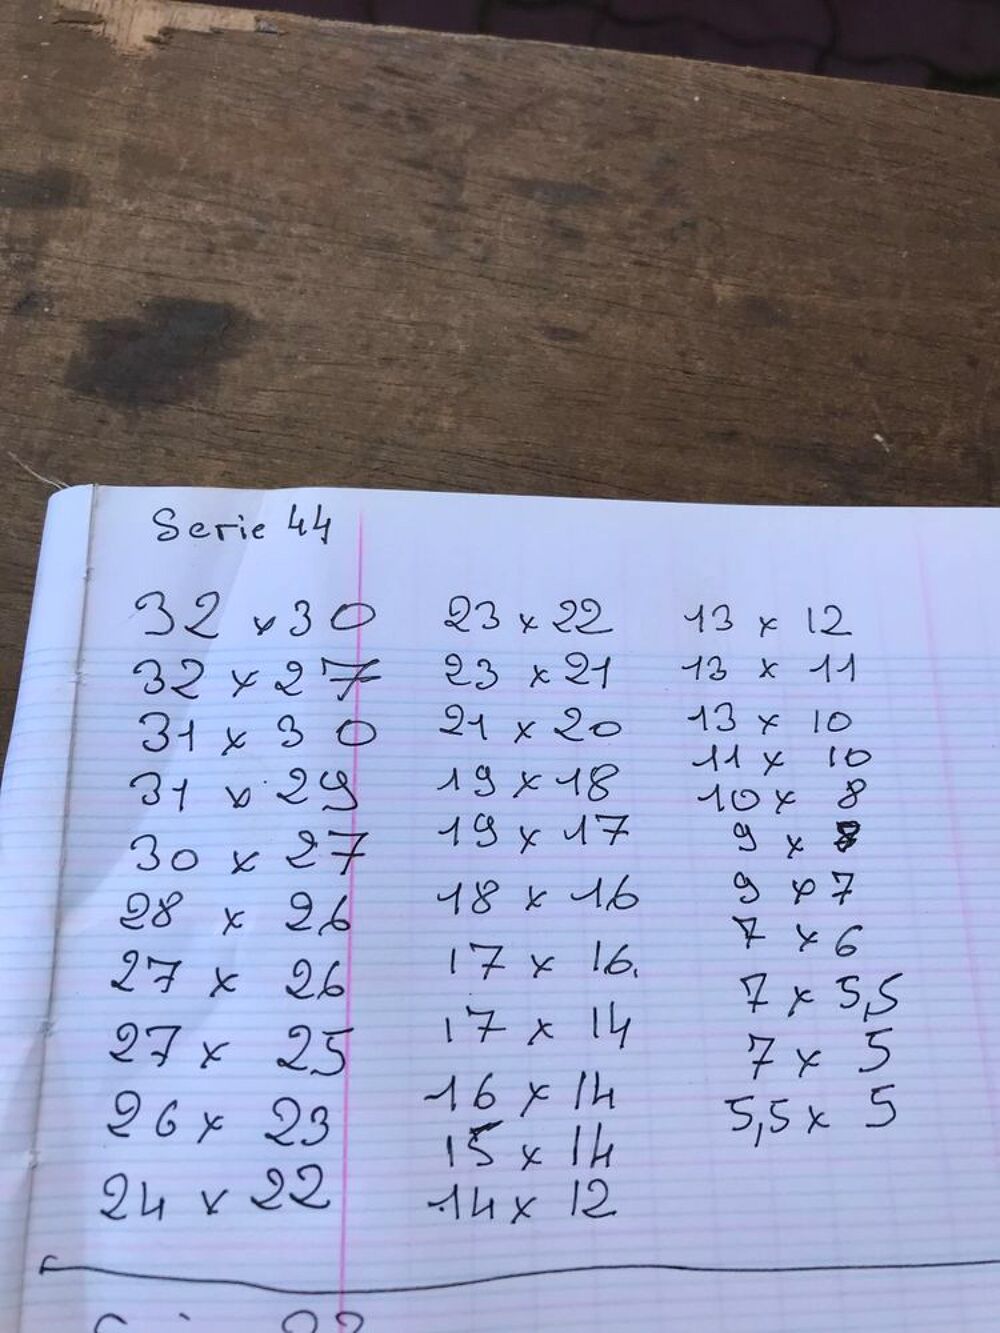 Serie 44
32 x 30
32 x 27
31 x 30
31 x 29
30 x 27
28 x 26
27 x 26
27 x 25
26 x 23
24 x 22
23 x 22
23 x 21
21 x 20
19 x 18
19 x 17
18 x 16
17 x 16.
17 x 14
16 x 14
15 x 14
14 x 12
13 x 12
13 x 11
13 x 10
11 x 10
10 x 8
9 x 8
9 x 7
7 x 6
7 x 5,5
7 x 5
5,5 x 5